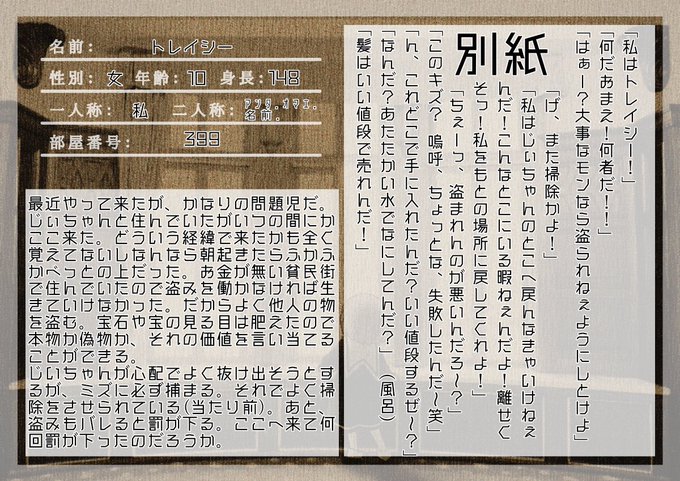 名前: トレイシー
性別: 女 年齢: 10 身長: 148
一人称: 私 二人称: アンタ.オマエ.名前.
部屋番号: 399
最近やって来たが、かなりの問題児だ。
じいちゃんと住んでいたがいつの間にか
ここ来た。どういう経緯で来たかも全く
覚えてないしなんなら朝起きたらふかふ
かべっとの上だった。お金が無い貧民街
で住んでいたので盗みを働かなければ生
きていけなかった。だからよく他人の物
を盗む。宝石や宝の見る目は肥えたので
本物か偽物か、それの価値を言い当てる
ことができる。
じいちゃんが心配でよく抜け出そうとす
るが、ミズに必ず捕まる。それでよく掃
除をさせられている(当たり前)。あと、
盗みもバレると罰が下る。ここへ来て何
回罰が下ったのだろうか。
別紙
「私はトレイシー！」
「何だおまえ！何者だ！！」
「はぁー？大事なモンなら盗られねぇようにしとけよ」
「げ、また掃除かよ！」
「私はじいちゃんのとこへ戻んなきゃいけねぇ
んだ！こんなとこにいる暇ねぇんだよ！離せく
そっ！私をもとの場所に戻してくれよ！」
「ちぇーっ、盗まれんのが悪いんだろ〜？」
「このキズ？ 嗚呼、ちょっとな、失敗したんだ〜笑」
「ん、これどこで手に入れたんだ？いい値段するぜ〜？」
「なんだ？あたたかい水でなにしてんだ？」 （風呂）
「髪はいい値段で売れんだ！」